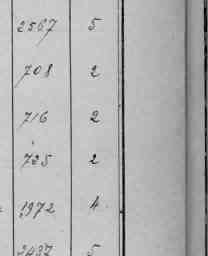 2567 5
708 2
716 2
725 2
1,972 4
2437 5